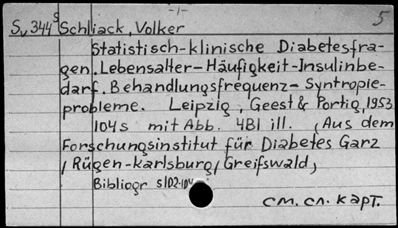 -1-
5
Sv344s Schliack, Volker
Statistisch-klinische Diabetesfra-
gen. Lebensalter-Häufigkeit-Insulinbe-
darf. Behandlungsfrequenz-Syntropie-
probleme. Leipzig, Geest & Portig, 1953
104s mit Abb. 4Bl ill. (Aus dem
Forschungsinstitut für Diabetes Garz
/Rügen-Karlsburg/Greifswald)
Bibliogr s102-104
см. сл. карт.